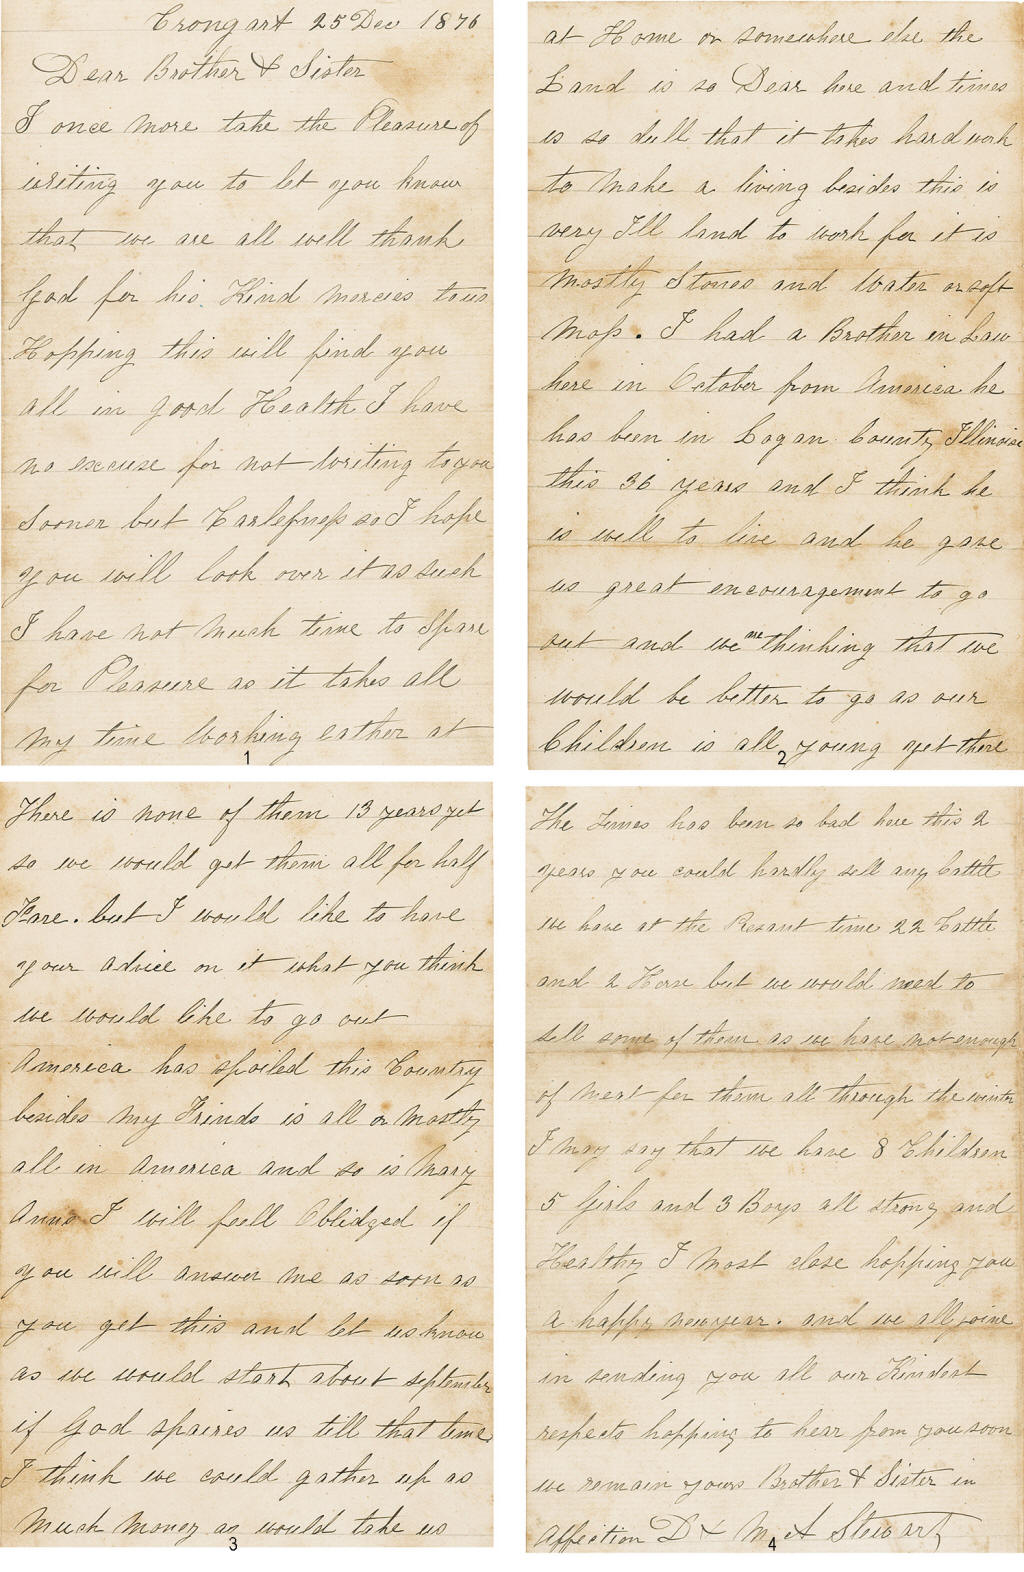 Crongart 25 Dec 1876
Dear Brother & Sister
I once more take the Pleasure of
writing you to let you know
that we are all well thank
God for his Kind mercies to us
Hopping this will find you
all in good Health I have
no excuse for not Writing to you
Sooner but Carlefness so I hope
you will look over it as such
I have not much time to Spare
for Pleasure as it takes all
my time Working eather at
1
at Home or somewhere else the
Land is so Dear here and times
is so dull that it takes hard work
to make a living besides this is
very Ill land to work for it is
mostly Stones and Water or soft
Moss. I had a Brother in Law
here in October from America he
has been in Logan County Illinoise
this 36 years and I think he
is well to live and he gave
us great encouragement to go
out and we are thinking that we
would be better to go as our
Children is all young yet there
2
There is none of them 13 years yet
so we would get them all for half
Fare. but I would like to have
your advice on it what you think
we would like to go out
America has spoiled this Country
besides my Frinds is all or mostly
all in America and so is Mary
Anns I will feell Oblidged if
you will answer me as soon as
you get this and let us know
as we would start about september
if God spaires us till that time
I think we could gather up as
much money as would take us
3
The times has been so bad here this 2
years you could hardly sell any Cattle
we have at the Resant time 22 Cattle
and 2 Horse but we would need to
sell some of them as we have not enough
of meat for them all through the winter
I may say that we have 8 Children
5 Girls and 3 Boys all strong and
Healthy I most close hopping you
a happy newyear. and we all joine
in sending you all our Kindest
respects hopping to hear from you soon
we remain yours Brother & Sister in
Affection D & M A Stewart
4